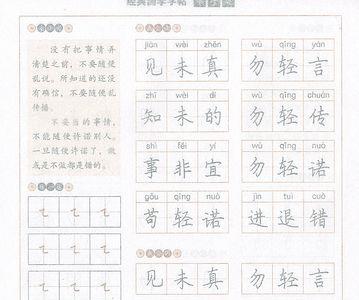 没有把事情弄
清楚之前,不要随便
乱说。所知道的还没
有确信,不要随便乱
传播。
不要当的事情,
不能随便许诺别人。
一旦随便许诺了,做
或是不做都是错的。
jiàn wèi zhēn wù qīng yán
见未真 勿轻言
zhī wèi dí wù qīng chuán
知未的 勿轻传
shì fēi yí wù qīng nuò
事非宜 勿轻诺
gǒu qīng nuò jìn tuì cuò
苟轻诺 进退错
见未真 勿轻言